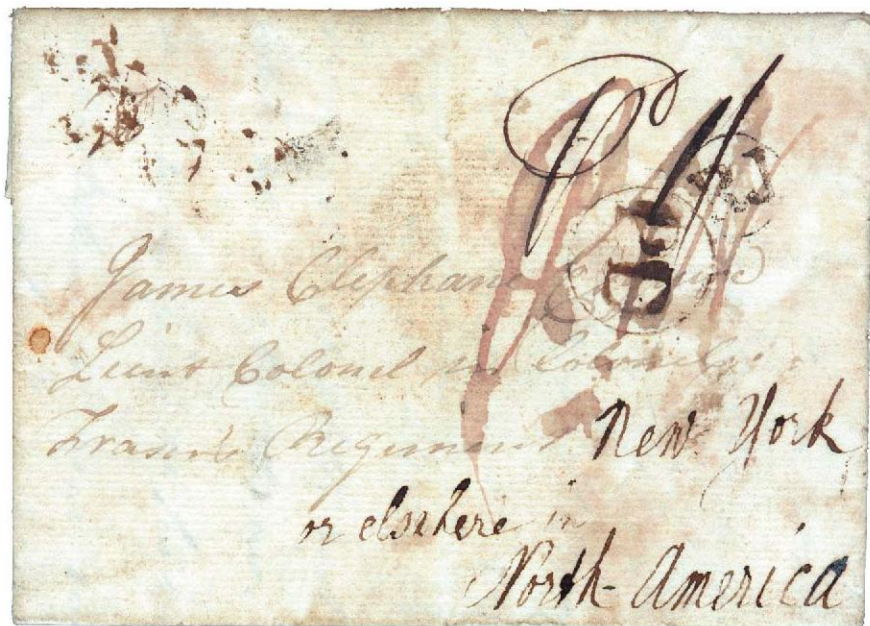 PD
James Clephane Esquire
Lieut Colonel in Colonel
Fraser's Regiment New York
or elsehere in
North America